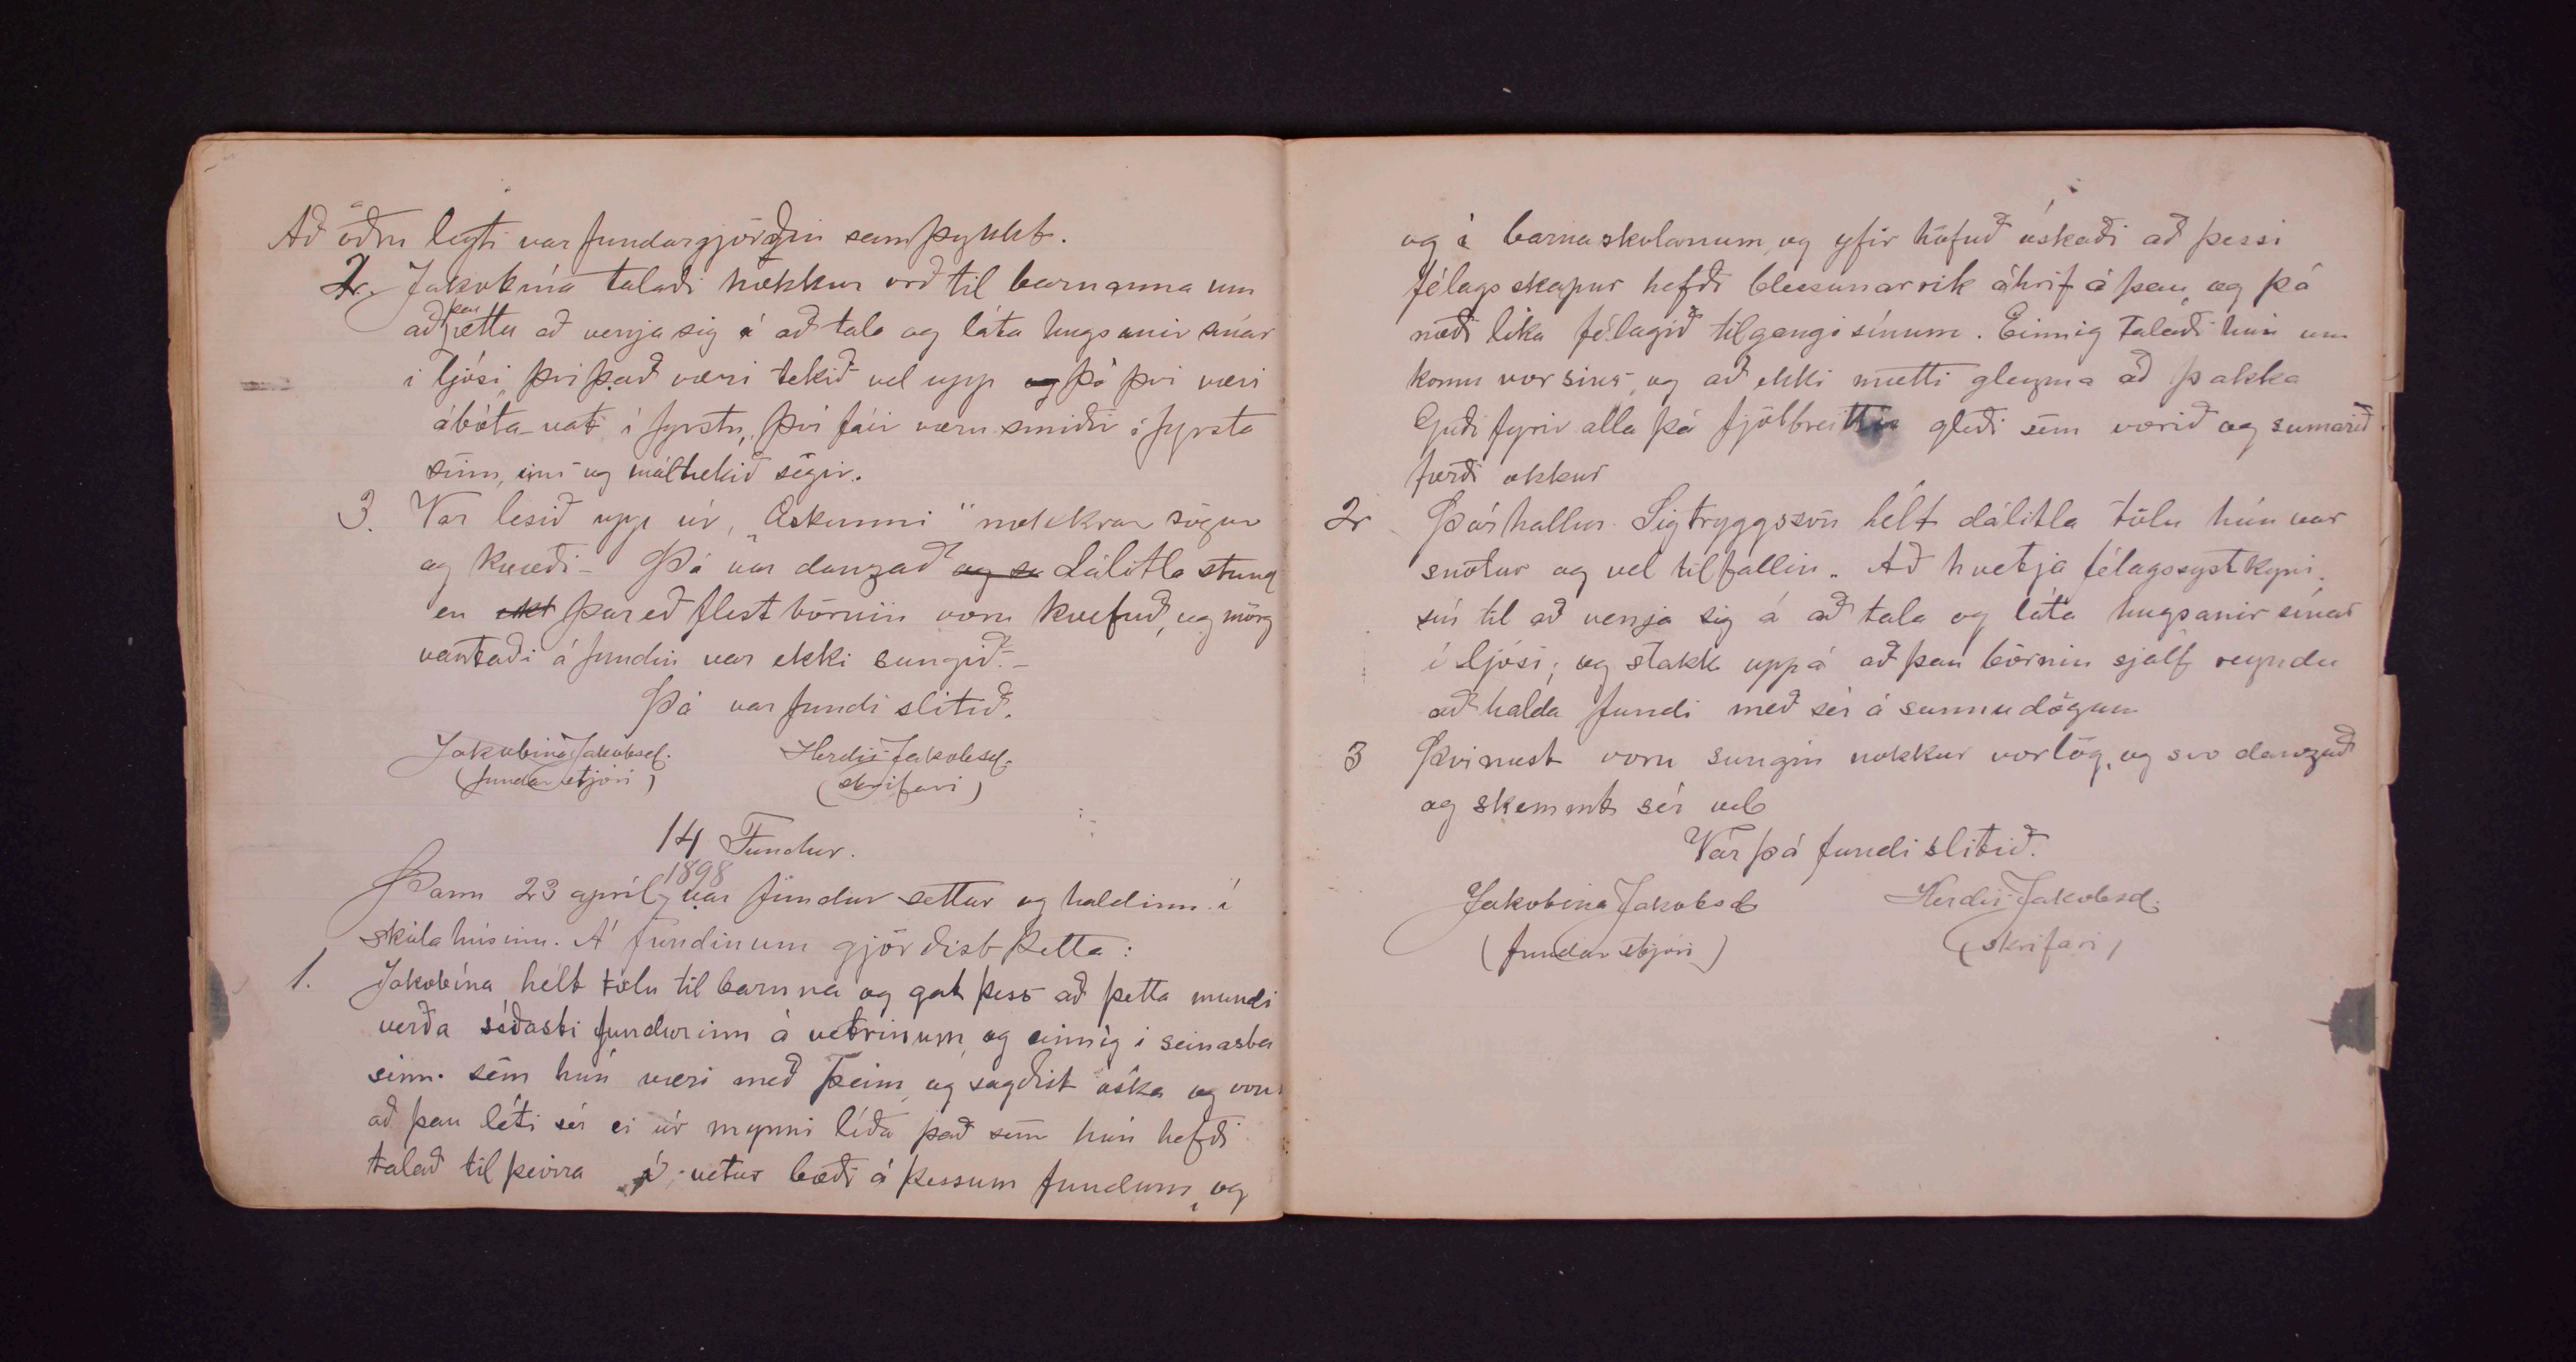 Að öðru leyti var fundargjörðin samþykkt.
2. Jakobína talaði nokkur orð til barnanna um
að þau ættu að venja sig á að tala og láta hugsanir sínar
í ljósi, því það væri tekið vel upp og þó því væri
ábóta-vat í fyrstu, því fáir væru smiðir í fyrsta
sinn, eins og máltækið segir.
3. Var lesið upp úr, „Öskunni" nokkrar sögur
og kvæði - Þá var danzað og sv dálitla stund
en ekt þar eð flest börnin voru kvefuð, og mörg
vantaði á fundin var ekki sungið. -
Þá var fundi slitið.
Jakobína Jakobsd. Herdís Jakobsd.
(fundarstjóri) (skrifari)
14 Fundur.
Þann 23 apríl, 1898 var fundur settur og haldinn í
skólahúsinu. Á fundinum gjörðist þetta:
1. Jakobína hélt tölu til barnna og gat þess að þetta mundi
verða síðasti fundurinn á vetrinum, og einnig í seinasta
sinn. sem hún væri með þeim, og sagðist óska og vona
að þau léti sér ei úr mynni líða það sem hún hefði
talað til þeirra í vetur bæði á þessum fundum, og
og í barnaskolanum, og yfir höfuð óskaði að þessi
félagsskapur hefði blessunarrik áhrif á þau, og þá
næði líka félagið tilgangi sínum. Einnig talaði hún um
komu vorsins, og að ekki mætti gleyma að þakka
Guði fyrir alla þá fjölbreittu gleði sem vorið og sumarið
færði okkur
2 Þórhallur Sigtryggsson hélt dálitla tölu hún var
snotur og vel tilfallin. Að hvetja félagssystkyni
sín til að venja sig á að tala og láta hugsanir sínar
í ljósi; og stakk uppá að þau börnin sjálf reyndu
að halda fundi með sér á sunnudögum
3 Þvínæst voru sungin nokkur vorlög, og svo danzað
og skemmt sér vel
Var þá fundi slitið.
Jakobína Jakobsd Herdís Jakobsd.
(fundarstjóri) (skrifari)